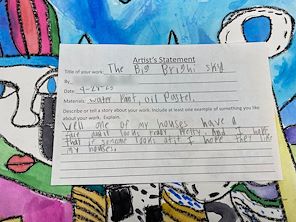 Artist's Statement
Title of your work: The Big Brighi sky
By
Date 4-24-25
Materials: water Paint, oil Pastel.
Describe or tell a story about your work. Include at least one example of something you like
about your work. Explain.
Well one of my houses have a
that looks really Pretty. And I hope
that if someone looks at it I hope they like
my houses.